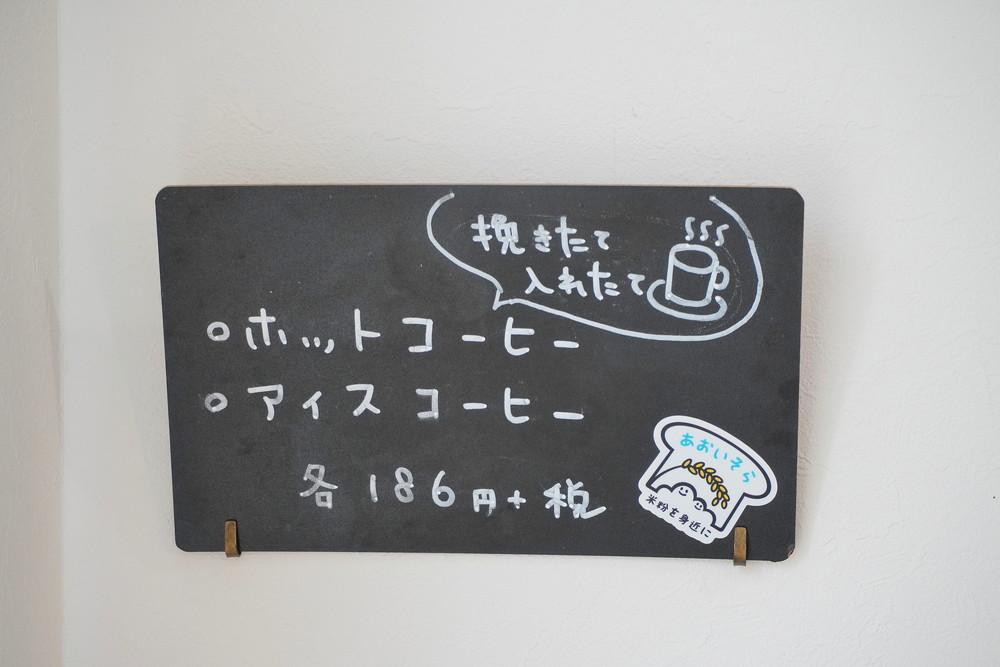 挽きたて
入れたて
○ホットコーヒー
○アイスコーヒー
各186円+税
あおいそら
米粉を身近に